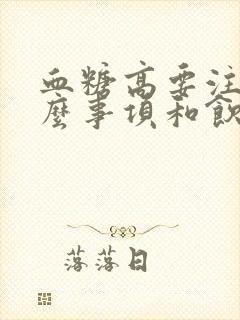 血糖高要注
麼事項和飲
落落日